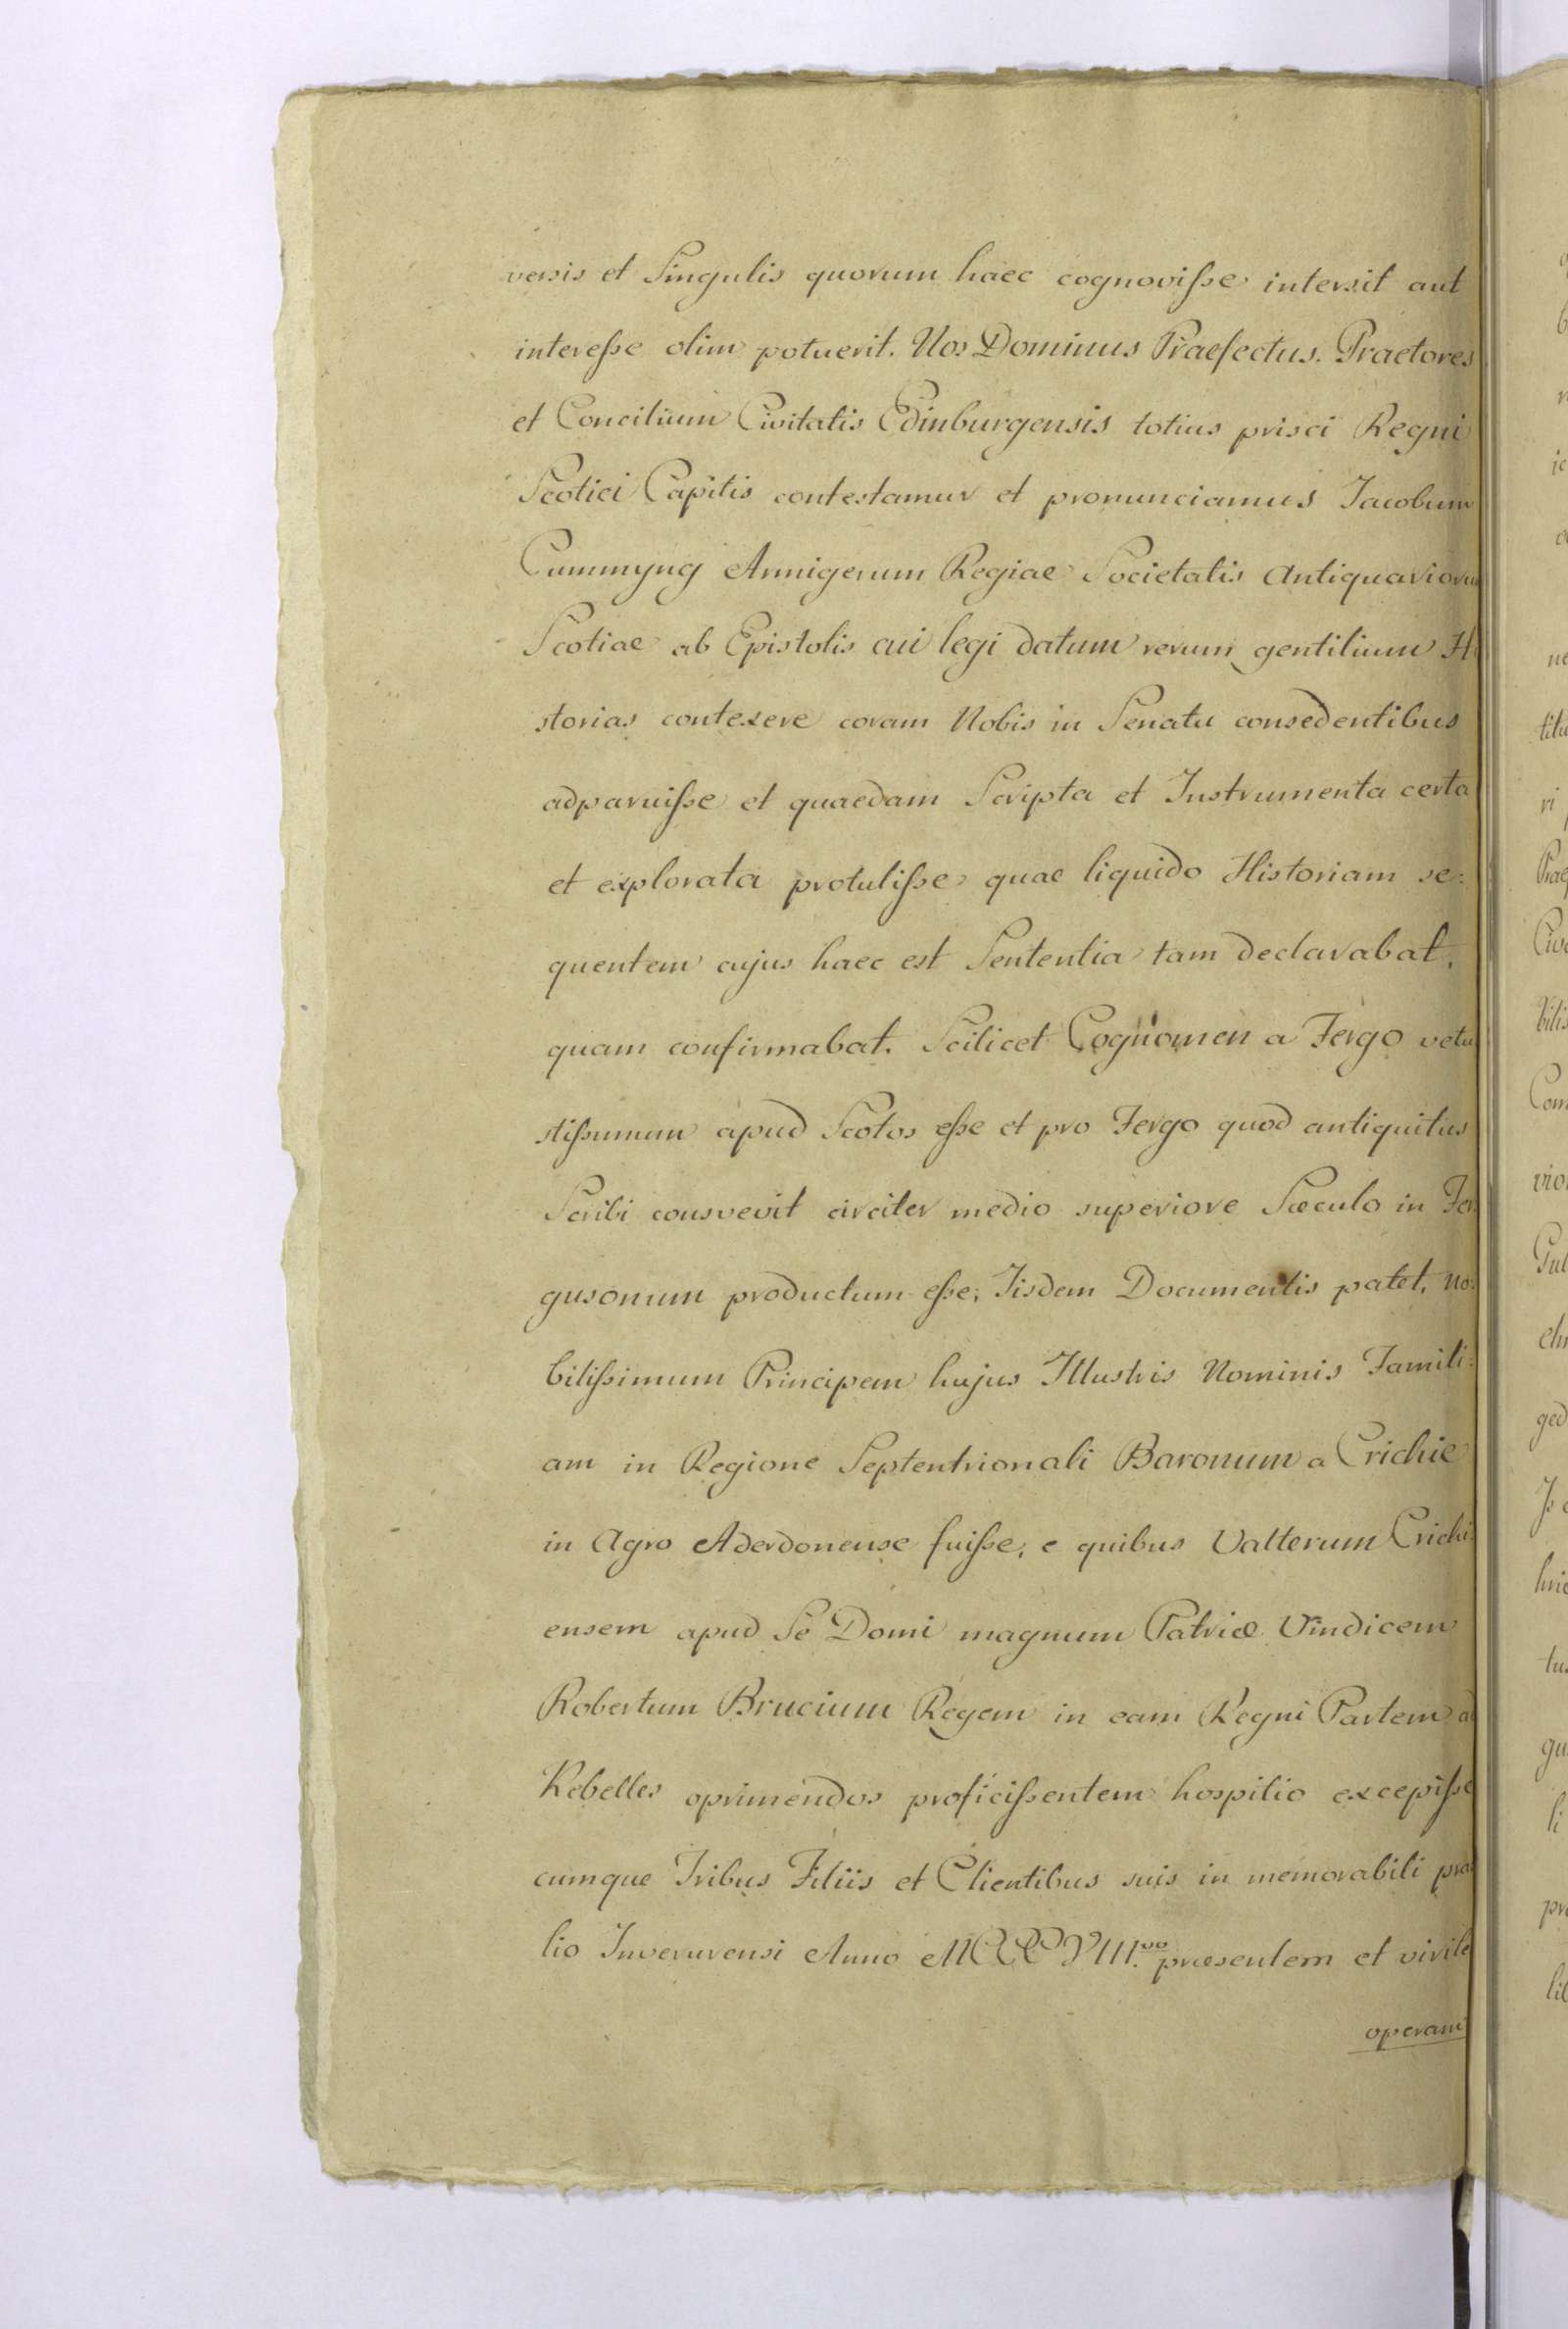 versis et Singulis quorum haec cognoviſse intersit aut
intereſse olim potuerit. Nos Dominus Praefectus. Praetores
et Concilium Civitatis Edinburgensis totius prisci Regni
Scotici Capitis contestamur et pronunciamus Jacobum
Cummyng Armigerum Regiae Societatis Antiquariorum
Scotiae ab Epistolis cui legi datum rerum gentilium Hi
storias contexere coram Nobis in Senatu consedentibus
adparuiſse et quaedam Scripta et Instrumenta certa
et explorata protuliſse quae liquido Historiam se:
quentem cujus haec est Sententia tam declarabat,
quam confirmabat. Scilicet Cognomen a Fergo vetu
stiſsumum apud Scotos eſse et pro Fergo quod antiquitus
Scribi consvevit circiter medio superiore Sæculo in Fer
gusonum productum eſse; Iisdem Documentis patet, no:
biliſsimum Principem hujus Illustris Nominis Famili:
am in Regione Septentrionali Baronum a Crichie
in Agro Aderdonense fuiſse, e quibus Valterum Crichi:
ensem apud Se Domi magnum Patriæ Vindicem
Robertum Brucium Regem in eam Regni Partem ad
Rebelles oprimendos proficiſsentem hospitio excepiſse
cumque Tribus Filiis et Clientibus suis in memorabili prae
lio Inverurensi Anno MCCCVIII.vo præsentem et virile
operam